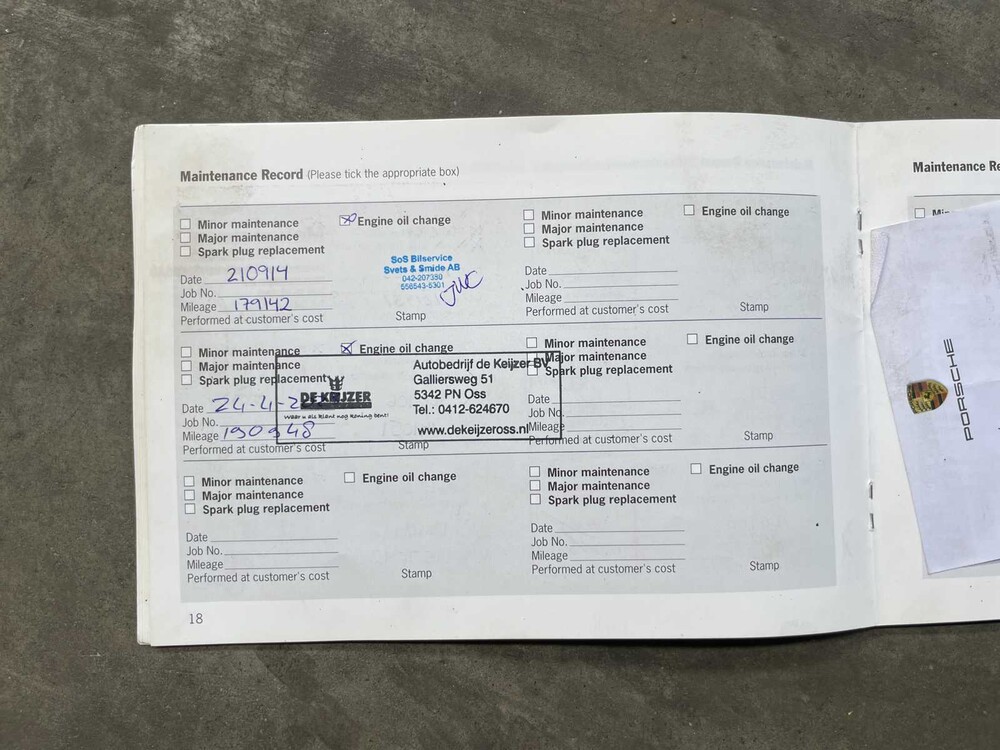 Maintenance Record (Please tick the appropriate box)
Minor maintenance
Major maintenance
Spark plug replacement
Engine oil change
Date 210914
Job No.
Mileage 179142
Performed at customer's cost
SoS Bilservice
Svets & Smide AB
042-207350
556543-5301
Stamp
Minor maintenance
Major maintenance
Spark plug replacement
Engine oil change
Date
Job No.
Mileage
Performed at customer's cost
Stamp
Minor maintenance
Major maintenance
Spark plug replacement
Engine oil change
Date 24-4-2
Job No.
Mileage 190948
Performed at customer's cost
DE KEIJZER
waar u als klant nog koning bent!
Autobedrijf de Keijzer BV
Galliersweg 51
5342 PN Oss
Tel.: 0412-624670
www.dekeijzeross.nl
Stamp
Minor maintenance
Major maintenance
Spark plug replacement
Engine oil change
Date
Job No.
Mileage
Performed at customer's cost
Stamp
Minor maintenance
Major maintenance
Spark plug replacement
Engine oil change
Date
Job No.
Mileage
Performed at customer's cost
Stamp
Minor maintenance
Major maintenance
Spark plug replacement
Engine oil change
Date
Job No.
Mileage
Performed at customer's cost
Stamp
18
Maintenance Re
Min
PORSCHE